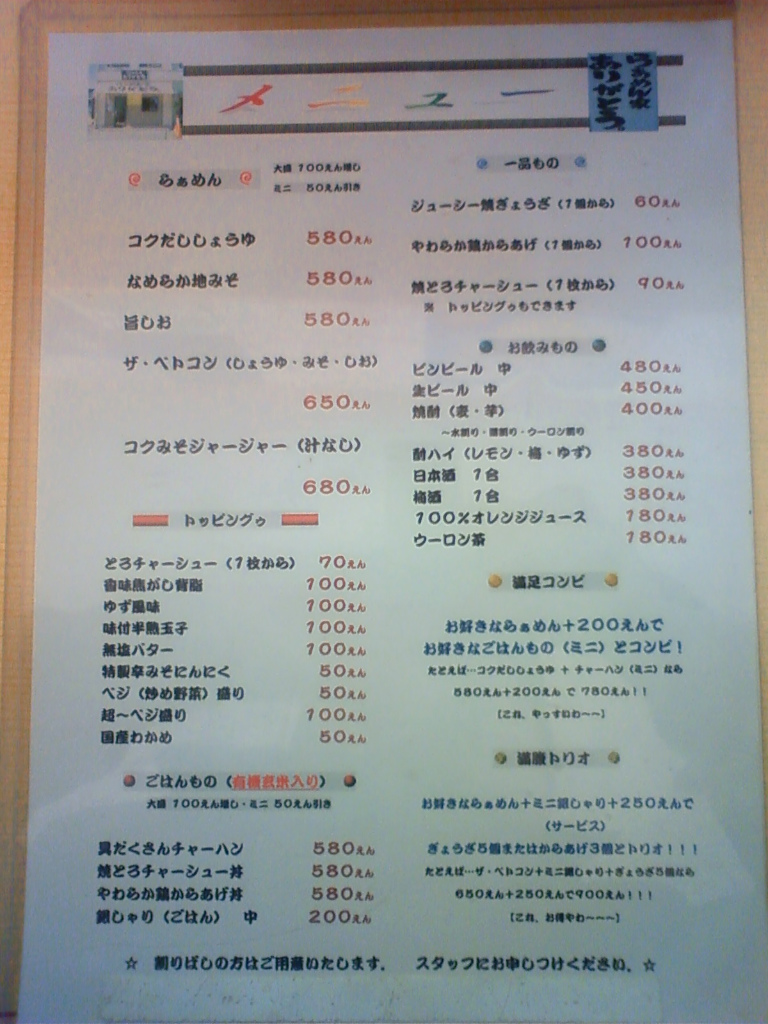 メニュー
らぁめん家
ありがとう。
らぁめん
大盛 100えん増し
ミニ 50えん引き
コクだししょうゆ 580えん
なめらか地みそ 580えん
旨しお 580えん
ザ・ベトコン（しょうゆ・みそ・しお）
650えん
コクみそジャージャー（汁なし）
680えん
トッピングゥ
とろチャーシュー（1枚から） 70えん
香味焦がし背脂 100えん
ゆず風味 100えん
味付半熟玉子 100えん
無塩バター 100えん
特製辛みそにんにく 50えん
ベジ（炒め野菜）盛り 50えん
超〜ベジ盛り 100えん
国産わかめ 50えん
ごはんもの（有機玄米入り）
大盛 100えん増し・ミニ 50えん引き
具だくさんチャーハン 580えん
焼とろチャーシュー丼 580えん
やわらか鶏からあげ丼 580えん
銀しゃり（ごはん） 中 200えん
一品もの
ジューシー焼ぎょうざ（1個から） 60えん
やわらか鶏からあげ（1個から） 100えん
焼とろチャーシュー（1枚から） 90えん
※ トッピングゥもできます
お飲みもの
ビンビール 中 480えん
生ビール 中 450えん
焼酎（麦・芋） 400えん
〜水割り・湯割り・ウーロン割り
酎ハイ（レモン・梅・ゆず） 380えん
日本酒 1合 380えん
梅酒 1合 380えん
100％オレンジジュース 180えん
ウーロン茶 180えん
満足コンビ
お好きならぁめん＋200えんで
お好きなごはんもの（ミニ）とコンビ！
たとえば…コクだししょうゆ ＋ チャーハン（ミニ）なら
580えん＋200えん で 780えん！！
（これ、やっすいわ〜〜）
満腹トリオ
お好きならぁめん＋ミニ銀しゃり＋250えんで
（サービス）
ぎょうざ5個またはからあげ3個とトリオ！！！
たとえば…ザ・ベトコン＋ミニ銀しゃり＋ぎょうざ5個なら
650えん＋250えんで900えん！！！
（これ、お得やわ〜〜〜）
☆ 割りばしの方はご用意いたします。 スタッフにお申しつけください。☆